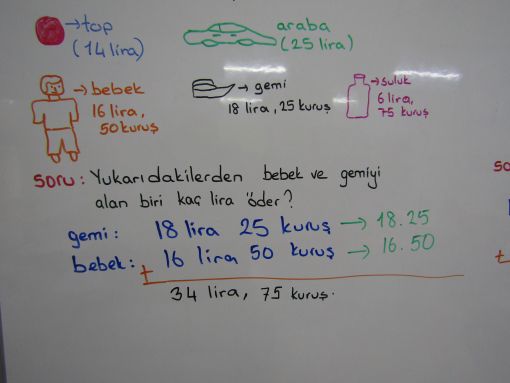 → top
(14 lira)
araba
(25 lira)
→ bebek
16 lira
50 kuruş
→ gemi
18 lira, 25 kuruş
→ suluk
6 lira,
75 kuruş
soru: Yukarıdakilerden bebek ve gemiyi
alan biri kaç lira öder?
gemi: 18 lira 25 kuruş → 18.25
bebek: 16 lira 50 kuruş → 16.50
+
34 lira, 75 kuruş.
so
+